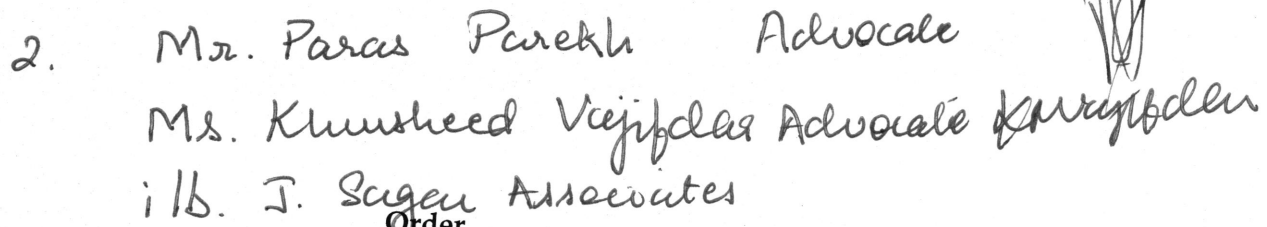 2. Mr. Paras Parekh Advocate
Ms. Khursheed Vajifdar Advocate
i/b. J. Sagar Associates
Order